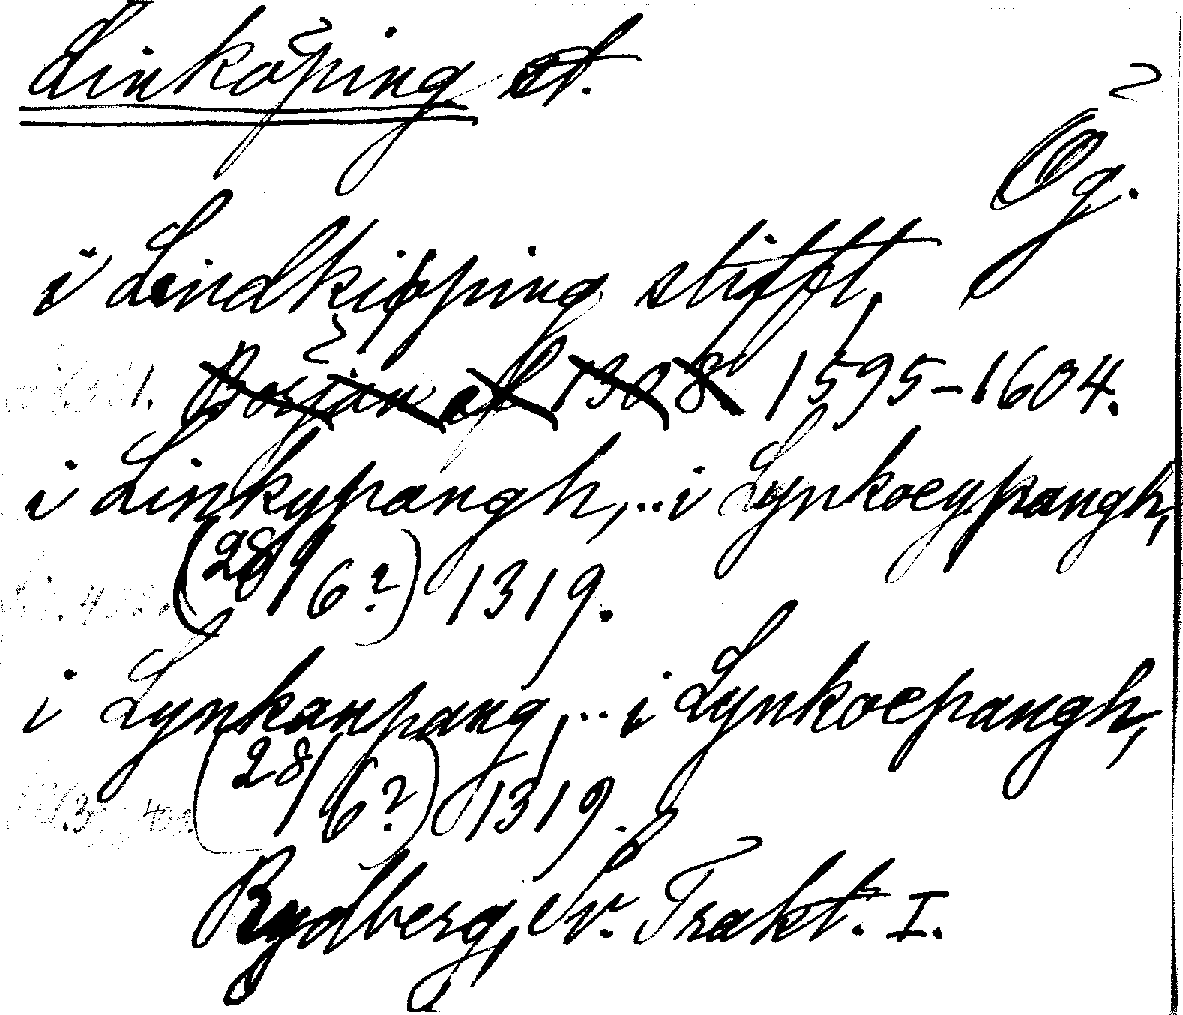 Linköping st.
Ög.
i Lindkiöpping stifft,
Början af 1308 1595-1604.
i Linkypangh,... i Lynkoeypangh,
(28/6?) 1319.
i Lynkanpang,... i Lynkoepangh,
(28/6?) 1319.
Rydberg, Sv. Trakt. I.